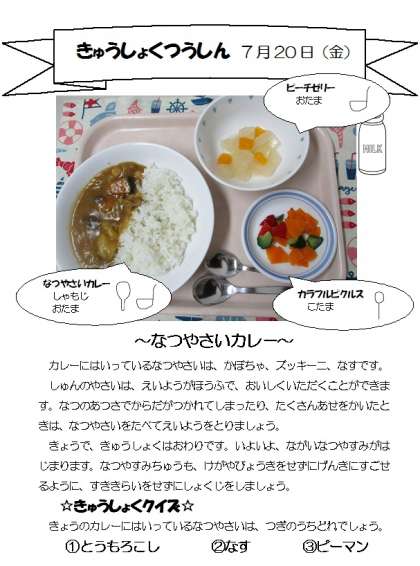 きゅうしょくつうしん ７月２０日（金）
ピーチゼリー
おたま
MILK
なつやさいカレー
しゃもじ
おたま
カラフルピクルス
こたま
～なつやさいカレー～
カレーにはいっているなつやさいは、かぼちゃ、ズッキーニ、なすです。
しゅんのやさいは、えいようがほうふで、おいしくいただくことができま
す。なつのあつさでからだがつかれてしまったり、たくさんあせをかいたと
きは、なつやさいをたべてえいようをとりましょう。
きょうで、きゅうしょくはおわりです。いよいよ、ながいなつやすみがは
じまります。なつやすみちゅうも、けがやびょうきをせずにげんきにすごせ
るように、すききらいをせずにしょくじをしましょう。
☆きゅうしょくクイズ☆
きょうのカレーにはいっているなつやさいは、つぎのうちどれでしょう。
①とうもろこし ②なす ③ピーマン